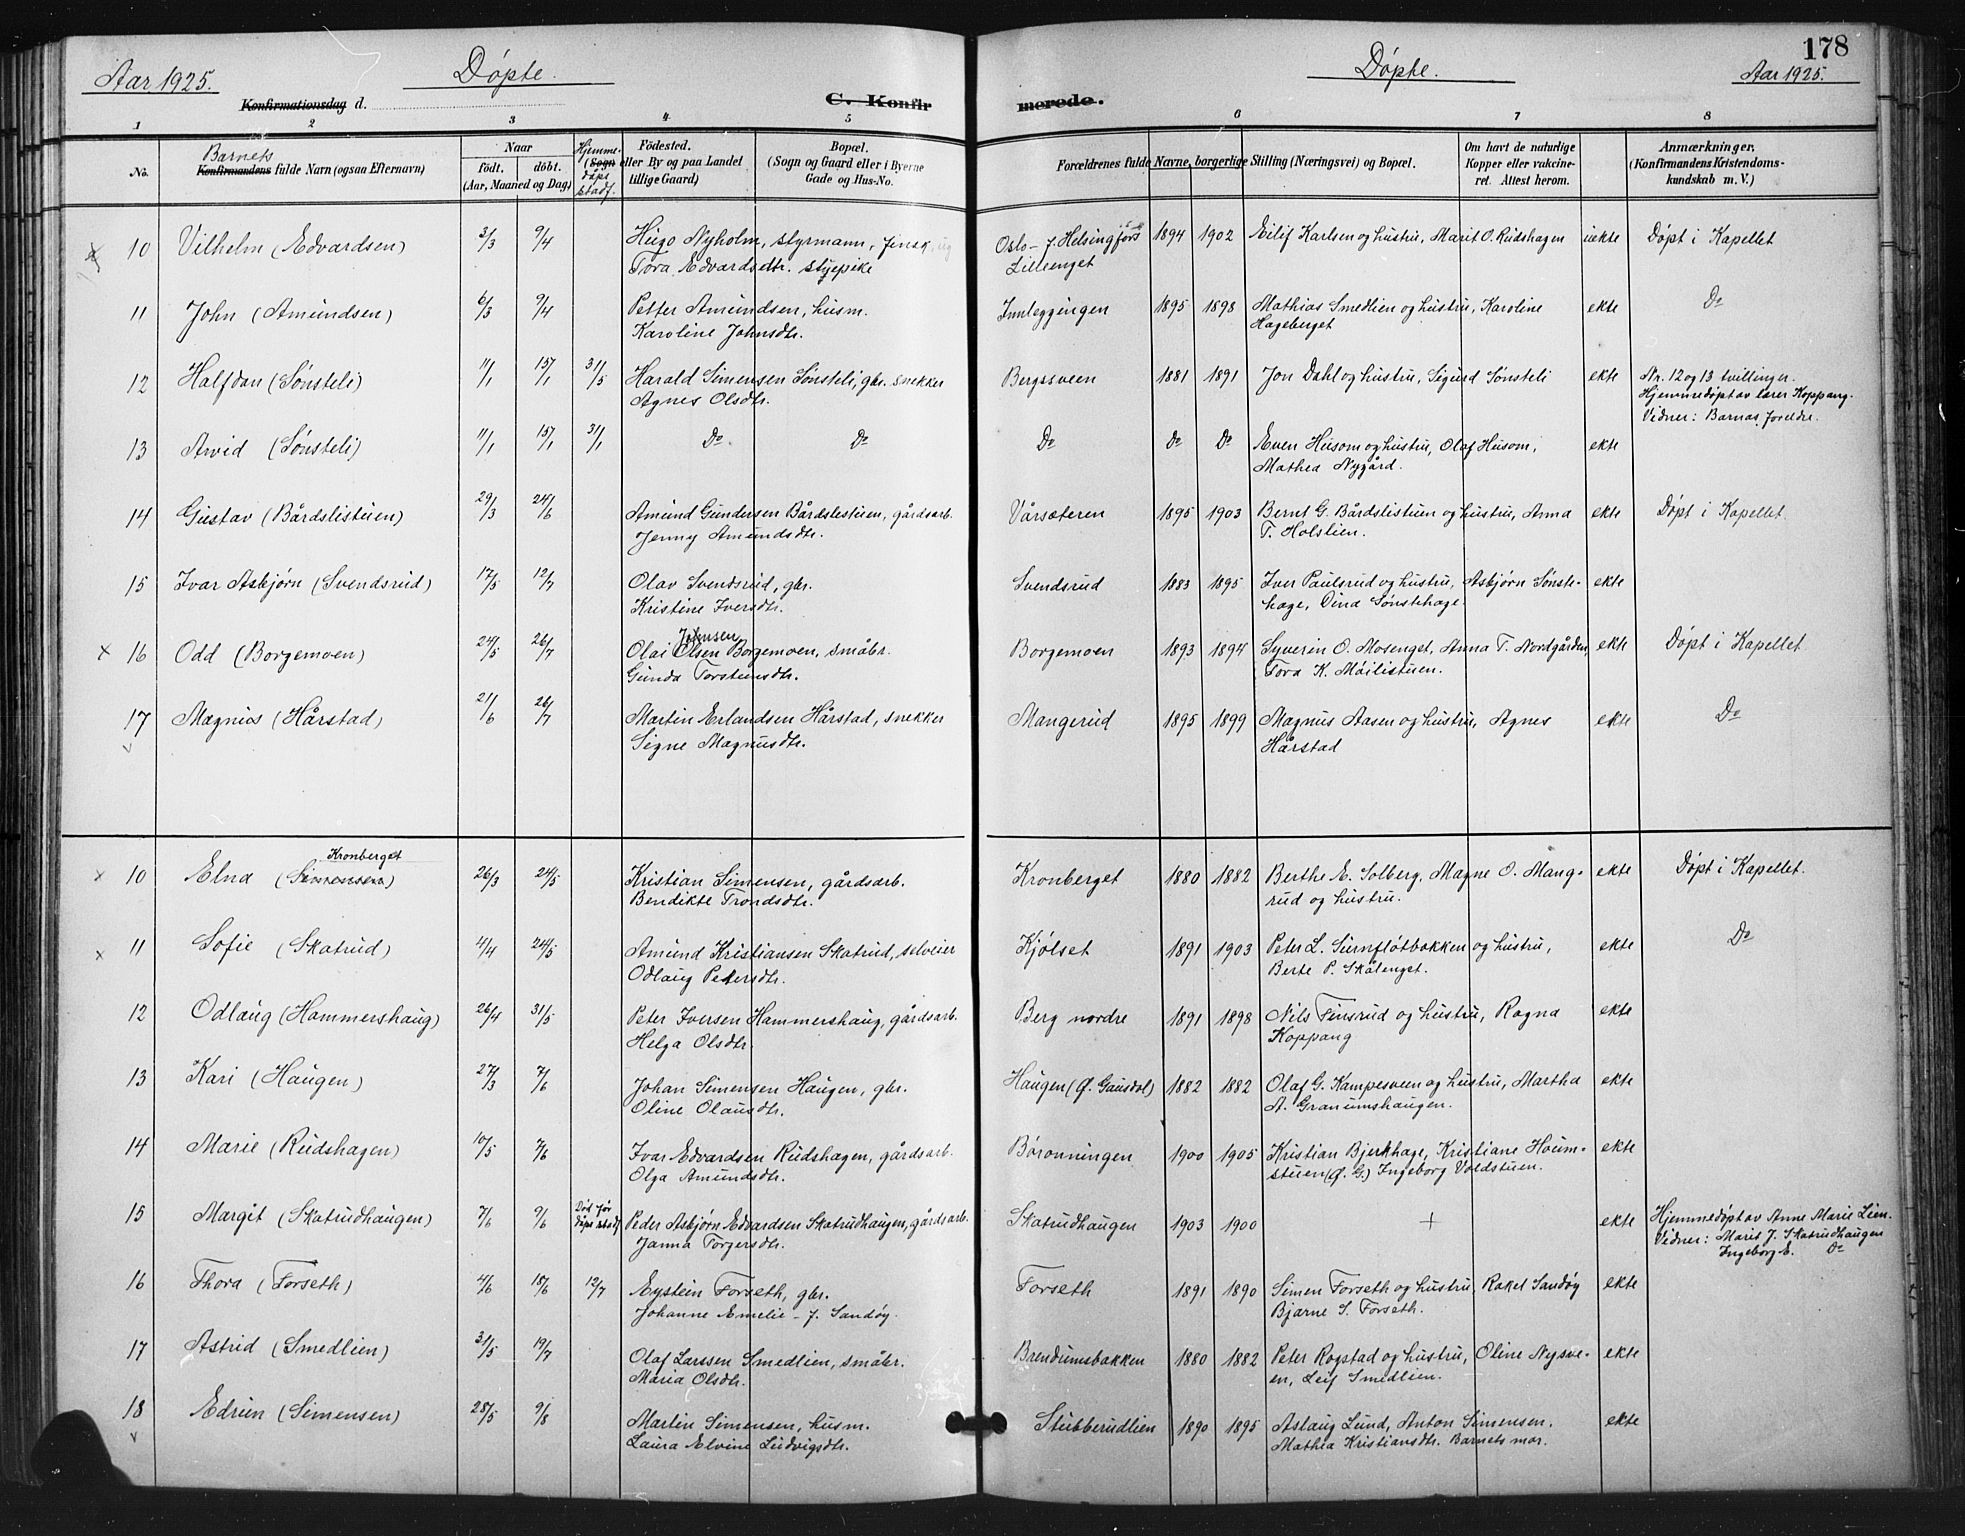 178
Aar 1925.
Døpte.
Døpte.
Aar 1925.
Konfirmationsdag d.
C. Konfir
merede.
1 2 3 4 5 6 7 8
No.
Barnets
Konfirmandens fulde Navn (ogsaa Efternavn)
Naar
Født. døbt.
(Aar, Maaned og Dag)
Hjemme-
døpt
stadf.
Fødested.
(Sogn eller By og paa Landet
tillige Gaard)
Bopæl.
(Sogn og Gaard eller i Byerne
Gade og Hus-No.
Forældrenes fulde Navne, borgerlige Stilling (Næringsvei) og Bopæl.
Om havt de naturlige
Kopper eller vakcine-
ret. Attest herom.
Anmærkninger.
(Konfirmandens Kristendoms-
kundskab m. V.)
10 Vilhelm (Edvardsen) 3/3 9/4 Hugo Nyholm, styrmann, finsk, ug Oslo - f. Helsingfors 1894 1902 Eilif Karlsen og hustru, Marit O. Rudshagen uekte Døpt i Kapellet
Tora Edvardsdtr. sypike Lilleenget
11 John (Amundsen) 6/3 9/4 Petter Amundsen, husm. Innleggingen 1895 1898 Mathias Smedlien og hustru, Karoline ekte Do
Karoline Johnsdtr. Hageberget
12 Halfdan (Sønsteli) 11/1 15/1 31/5 Harald Simensen Sønsteli, gbr. snekker Bergssveen 1881 1891 Jon Dahl og hustru, Sigurd Sønsteli ekte Nr. 12 og 13 tvillinger.
Agnes Olsdtr. Hjemmedøpt av lærer Koppang.
Vidner: Barnas foreldre.
13 Arvid (Sønsteli) 11/1 15/1 31/1 Do Do Do Do Do Even Husom og hustru, Olaf Husom, ekte
Mathea Nygård.
14 Gustav (Bårdslistuen) 29/3 24/6 Amund Gundersen Bårdslistuen, gårdsarb. Vårsæteren 1895 1903 Bernt G. Bårdslistuen og hustru, Anna ekte Døpt i Kapellet
Jenny Amundsdtr. T. Holslien.
15 Ivar Asbjørn (Svendsrud) 17/5 12/7 Olav Svendsrud, gbr. Svendsrud 1883 1895 Iver Paulsrud og hustru, Asbjørn Sønste- ekte
Kristine Iversdtr. hage, Dina Sønstehage.
Johnsen
16 Odd (Borgemoen) 24/5 26/7 Olai Olsen Borgemoen, småbr. Borgemoen 1893 1894 Syverin O. Mosenget, Anna T. Nordgården, ekte Døpt i Kapellet
Gunda Torsteinsdtr. Tora K. Møilistuen.
17 Magnus (Hårstad) 21/6 26/7 Martin Erlandsen Hårstad, snekker Mangerud 1895 1899 Magnus Aasen og hustru, Agnes ekte Do
Signe Magnusdtr. Hårstad
Kronberget
10 Elna (Simensen) 26/3 24/5 Kristian Simensen, gårdsarb. Kronberget 1880 1882 Berthe E. Solberg, Magne O. Mang- ekte Døpt i Kapellet.
Bendikte Trondsdtr. rud og hustru.
11 Sofie (Skatrud) 4/4 24/5 Amund Kristiansen Skatrud, selveier Kjølset 1891 1903 Peter L. Surnfløtbakken og hustru, ekte Do
Odlaug Petersdtr. Berte P. Skålenget.
12 Odlaug (Hammershaug) 26/4 31/5 Peter Iversen Hammershaug, gårdsarb. Berg nordre 1891 1898 Nils Finsrud og hustru, Ragna ekte
Helga Olsdtr. Koppang
13 Kari (Haugen) 27/3 7/6 Johan Simensen Haugen, gbr. Haugen (Ø. Gausdal) 1882 1882 Olaf G. Kampesveen og hustru, Martha ekte
Oline Olausdtr. A. Granumshaugen.
14 Marie (Rudshagen) 10/5 7/6 Ivar Edvardsen Rudshagen, gårdsarb. Børonningen 1900 1905 Kristian Bjerkhage, Kristiane Houm- ekte
Olga Amundsdtr. stuen (Ø. G.) Ingeborg Voldstuen.
15 Margit (Skatrudhaugen) 7/6 9/6 Død før Peder Asbjørn Edvardsen Skatrudhaugen, gårdsarb. Skatrudhaugen 1903 1900 + ekte Hjemmedøpt av Anne Marie Lien.
døpt stadf Janna Torgersdtr. Vidner: Marit J. Skatrudhaugen
Ingeborg E. Do
16 Thora (Forseth) 4/6 15/6 12/7 Eystein Forseth, gbr. Forseth 1891 1890 Simen Forseth og hustru, Rakel Sandøy ekte
Johanne Emelie - f. Sandøy. Bjarne S. Forseth.
17 Astrid (Smedlien) 3/5 19/7 Olaf Larssen Smedlien, småbr. Brendumsbakken 1880 1882 Peter Rogstad og hustru, Oline Nysve- ekte
Maria Olsdtr. en, Leif Smedlien.
18 Edrun (Simensen) 28/5 9/8 Martin Simensen, husm. Stubberudlien 1890 1895 Aslaug Lund, Anton Simensen. ekte
Laura Elvine Ludvigsdtr. Mathea Kristiansdtr. Barnets mor.